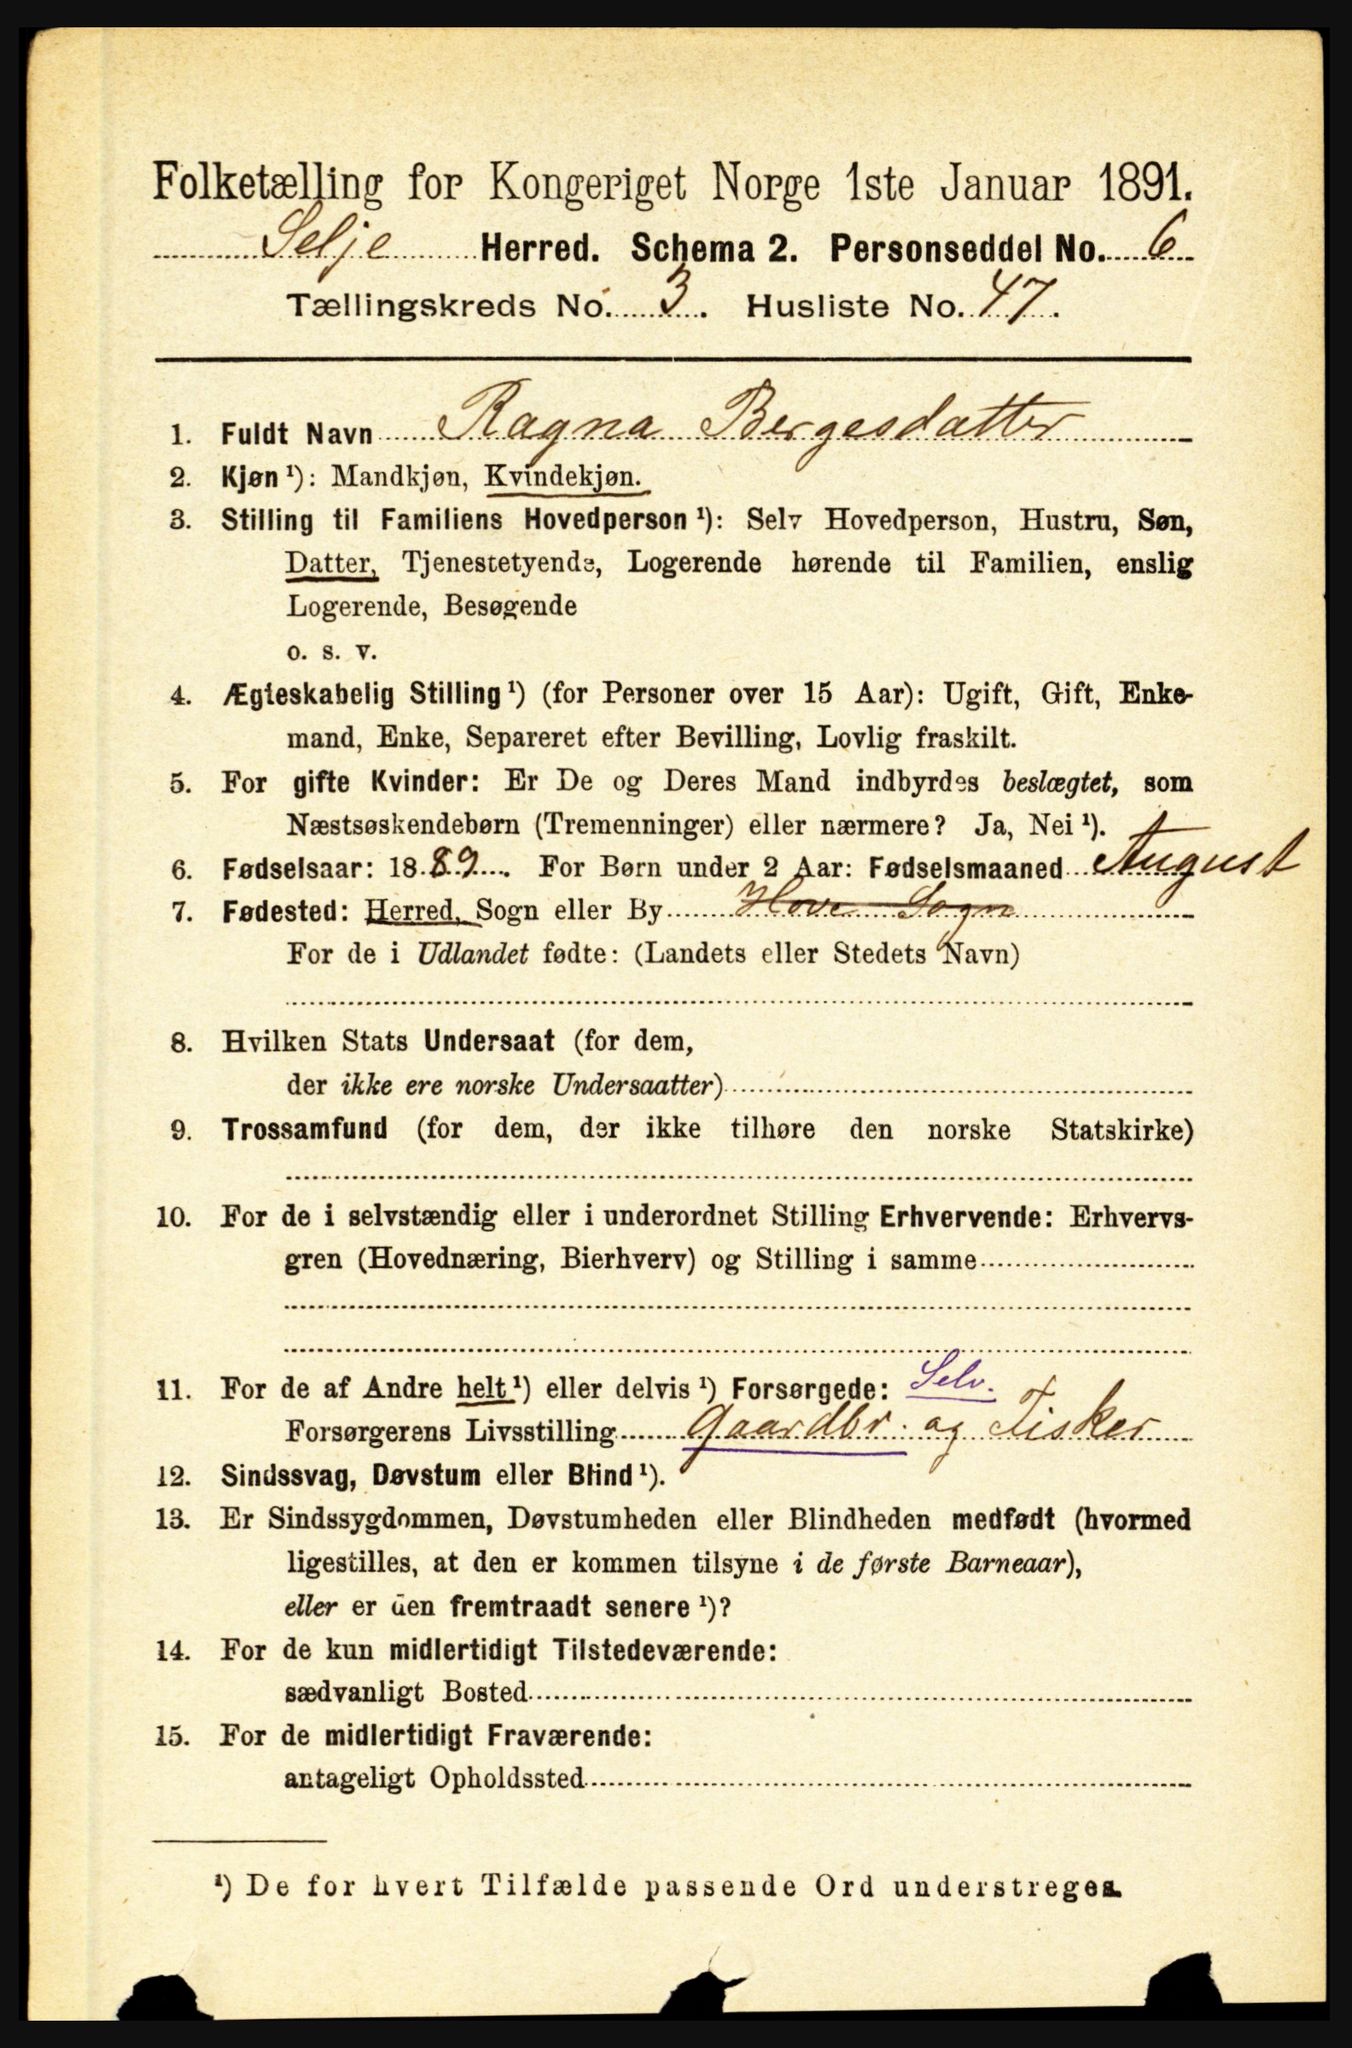 Folketælling for Kongeriget Norge 1ste Januar 1891.
Selje Herred. Schema 2. Personseddel No. 6
Tællingskreds No. 3. Husliste No. 47.
1. Fuldt Navn Ragna Bergesdatter
2. Kjøn ¹): Mandkjøn, Kvindekjøn.
3. Stilling til Familiens Hovedperson ¹): Selv Hovedperson, Hustru, Søn,
Datter, Tjenestetyende, Logerende hørende til Familien, enslig
Logerende, Besøgende
o. s. v.
4. Ægteskabelig Stilling ¹) (for Personer over 15 Aar): Ugift, Gift, Enke-
mand, Enke, Separeret efter Bevilling, Lovlig fraskilt.
5. For gifte Kvinder: Er De og Deres Mand indbyrdes beslægtet, som
Næstsøskendebørn (Tremenninger) eller nærmere? Ja, Nei ¹).
6. Fødselsaar: 1889. For Børn under 2 Aar: Fødselsmaaned August
7. Fødested: Herred, Sogn eller By Hove Sogn
For de i Udlandet fødte: (Landets eller Stedets Navn)
8. Hvilken Stats Undersaat (for dem,
der ikke ere norske Undersaatter)
9. Trossamfund (for dem, der ikke tilhøre den norske Statskirke)
10. For de i selvstændig eller i underordnet Stilling Erhvervende: Erhvervs-
gren (Hovednæring, Bierhverv) og Stilling i samme
11. For de af Andre helt ¹) eller delvis ¹) Forsørgede: Selv.
Forsørgerens Livsstilling Gaardbr. og Fisker
12. Sindssvag, Døvstum eller Blind ¹).
13. Er Sindssygdommen, Døvstumheden eller Blindheden medfødt (hvormed
ligestilles, at den er kommen tilsyne i de første Barneaar),
eller er den fremtraadt senere ¹)?
14. For de kun midlertidigt Tilstedeværende:
sædvanligt Bosted
15. For de midlertidigt Fraværende:
antageligt Opholdssted
¹) De for hvert Tilfælde passende Ord understreges.